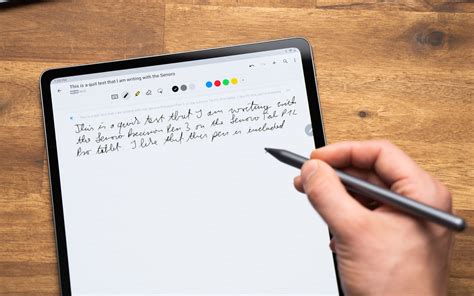 This is a quil test that I am writing with the Senoro
This is a quik test that I am writing with
the Lenovo Precision Pen 3 on the Lenovo Pad P12
Pro tablet. I like that this pen is included